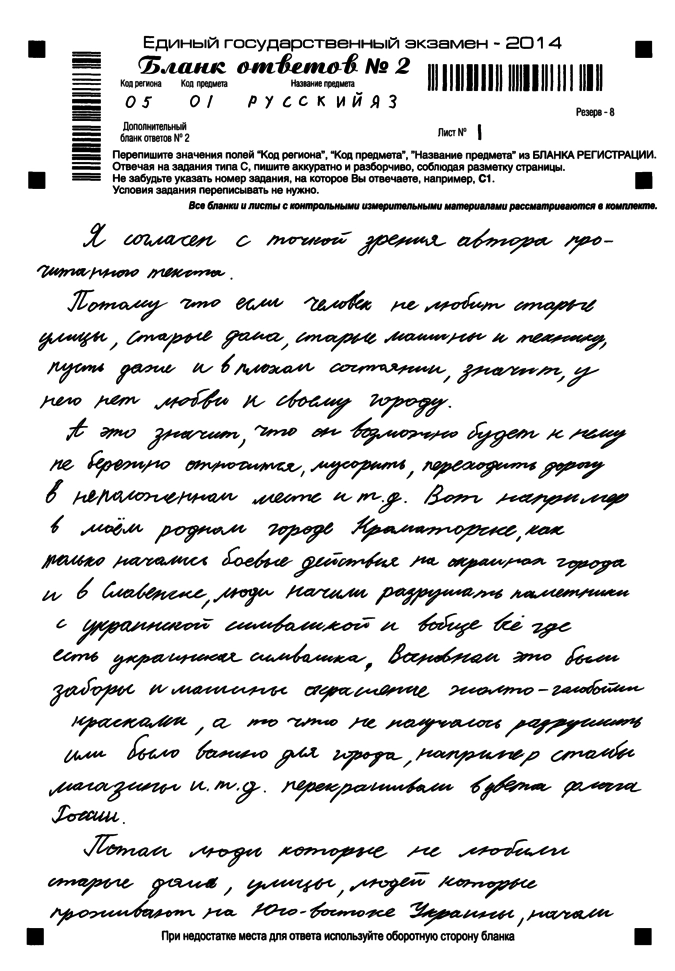 Единый государственный экзамен - 2014
Бланк ответов № 2
Код региона Код предмета Название предмета
05 01 РУССКИЙ ЯЗ
Резерв - 8
Дополнительный
бланк ответов № 2
Лист № 1
Перепишите значения полей "Код региона", "Код предмета", "Название предмета" из БЛАНКА РЕГИСТРАЦИИ.
Отвечая на задания типа С, пишите аккуратно и разборчиво, соблюдая разметку страницы.
Не забудьте указать номер задания, на которое Вы отвечаете, например, С1.
Условия задания переписывать не нужно.
Все бланки и листы с контрольными измерительными материалами рассматриваются в комплекте.
Я согласен с точкой зрения автора про-
читанного текста.
Потому что если человек не любит старые
улицы, старые дома, старые машины и технику,
пусть даже и в плохом состоянии, значит, у
него нет любви к своему городу.
А это значит, что он возможно будет к нему
не бережно относится, мусорить, переходить дорогу
в неположенном месте и т.д. Вот например
в моём родном городе Краматорске, как
только начались боевые действия на окраинах города
и в Славенске, люди начили разрушать паметники
с украинской симваликой и вобще всё где
есть украинская симвалика. Восновном это были
заборы и машины окрашение жолто-галобыми
красками, а то что не получалось разрушить
или было важно для города, например столбы
магазины и.т.д. перекрашивали в цвета флага
Росии.
Потом люди которые не любили
старые дома, улицы, людей которые
проживают на Юго-востоке Украины, начали
При недостатке места для ответа используйте оборотную сторону бланка